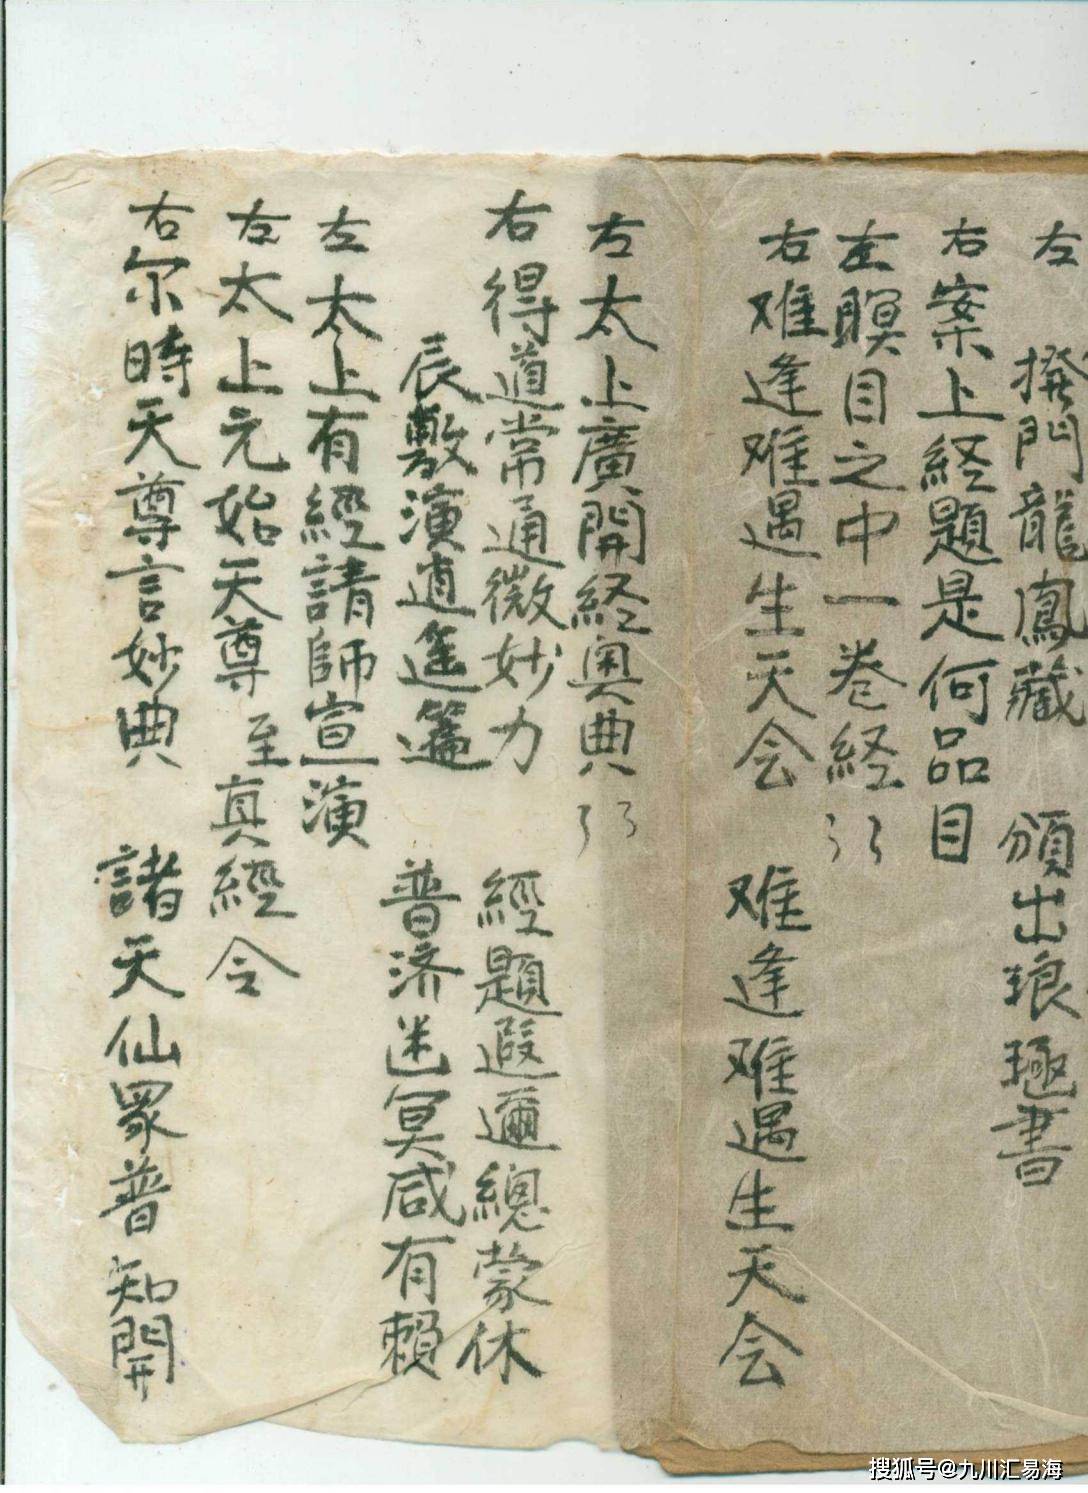 左　撥門龍鳳藏　頒出琅璚書
右案上経題是何品目
左瞑目之中一卷経
右难逢难遇生天会　难逢难遇生天会
左太上廣開経奥典
右得道常通微妙力　經題遐邇總蒙休
辰敷演逍遥篇　普济迷冥咸有賴
左太上有經請師宣演
左太上元始天尊至真經令
右尔時天尊言妙典　諸天仙眾普知開
搜狐号@九川汇易海